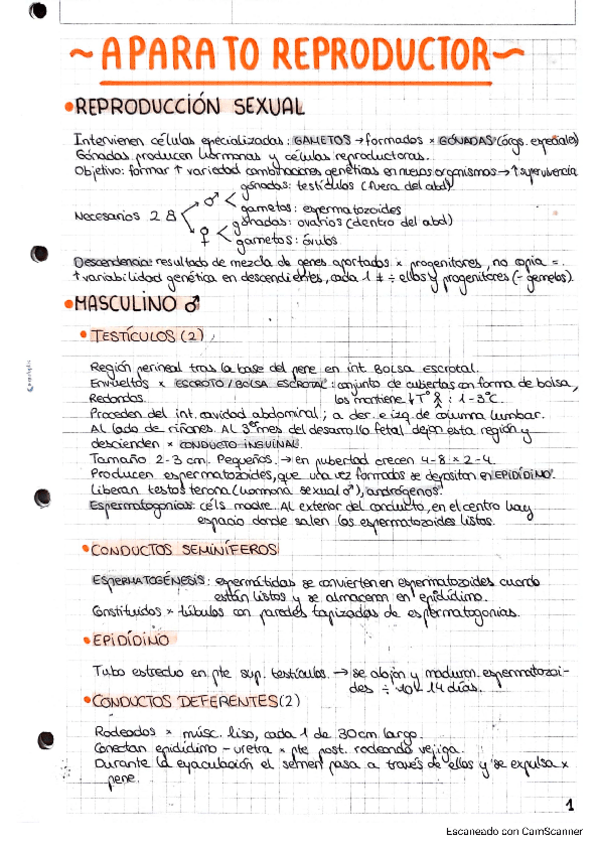 ~APARATO REPRODUCTOR~
•REPRODUCCIÓN SEXUAL
Intervienen células especializadas: GAMETOS → formados × GÓNADAS (órgs. especiales)
Gónadas producen hormonas y células reproductoras.
Objetivo: formar ↑ variedad combinaciones genéticas en nuevos organismos → ↑ supervivencia
gónadas: testículos (fuera del abd)
♂ <
gametos: espermatozoides
Necesarios 2 8
gónadas: ovarios (dentro del abd)
♀ <
gametos: óvulos
Descendencia: resultado de mezcla de genes aportados × progenitores, no copia =.
↑ variabilidad genética en descendientes, cada 1 ≠ ÷ ellos y progenitores (- gemelos).
•MASCULINO ♂
•TESTÍCULOS (2)
Región perineal tras la base del pene en int. BOLSA ESCROTAL.
Envueltos × ESCROTO / BOLSA ESCROTAL: conjunto de cubiertas con forma de bolsa,
Redondos. los mantiene ↓ Tº : 1-3ºC.
Proceden del int. cavidad abdominal; a der. e izq. de columna lumbar.
Al lado de riñones. Al 3º mes del desarrollo fetal dejan esta región y
descienden × CONDUCTO INGUINAL.
Tamaño 2-3 cm. Pequeños. → en pubertad crecen 4-8 × 2-4.
Producen espermatozoides, que una vez formados se depositan en EPIDÍDIMO.
Liberan testosterona (hormona sexual ♂), andrógenos.
Espermatogonias: céls. madre. Al exterior del conducto, en el centro hay
espacio donde salen los espermatozoides listos.
•CONDUCTOS SEMINÍFEROS
ESPERMATOGÉNESIS: espermátidas se convierten en espermatozoides cuando
están listos y se almacenan en epidídimo.
Constituidos × túbulos con paredes tapizadas de espermatogonias.
•EPIDÍDIMO
Tubo estrecho en pte sup. testículos. → se alojan y maduran espermatozoi-
des ÷ 10 - 14 días.
•CONDUCTOS DEFERENTES (2)
Rodeados × músc. liso, cada 1 de 30cm largo.
Conectan epidídimo - uretra × pte post. rodeando vejiga.
Durante la eyaculación el semen pasa a través de ellos y se expulsa ×
pene.
1
Escaneado con CamScanner